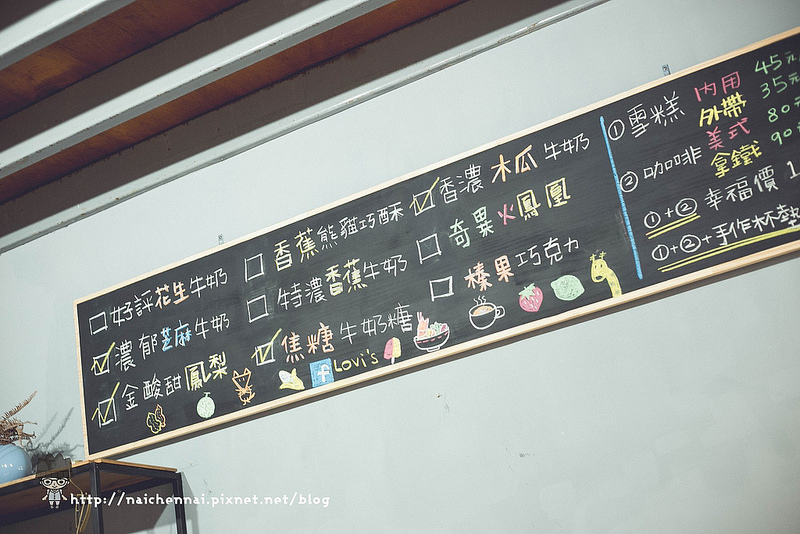 好評花生牛奶
濃郁芝麻牛奶
金酸甜鳳梨
香蕉熊貓巧酥
特濃香蕉牛奶
焦糖牛奶糖
Lovi's
香濃木瓜牛奶
奇異火鳳凰
榛果巧克力
①雪糕 內用 45元
外帶 35元
②咖啡 美式 80元
拿鐵 90
①+② 幸福價 1
①+②+手作杯墊
http://naichennai.pixnet.net/blog